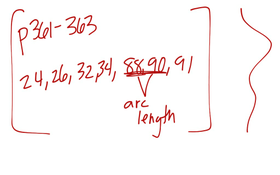 p361-363
24, 26, 32, 34, 88, 90, 91
arc
length